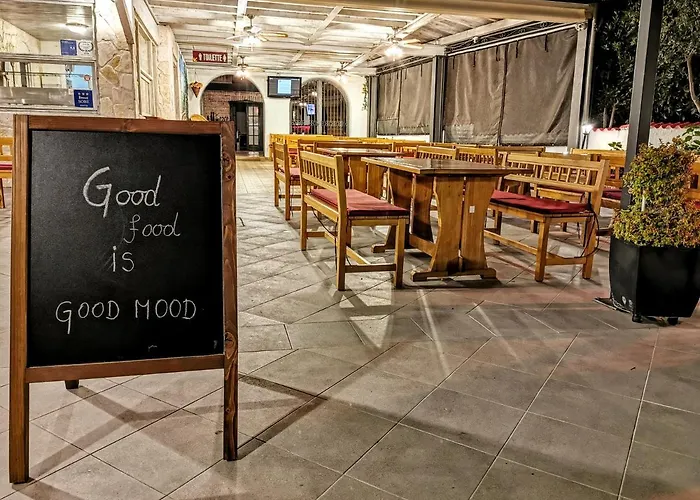 Good
food
is
GOOD MOOD
TOILETTE